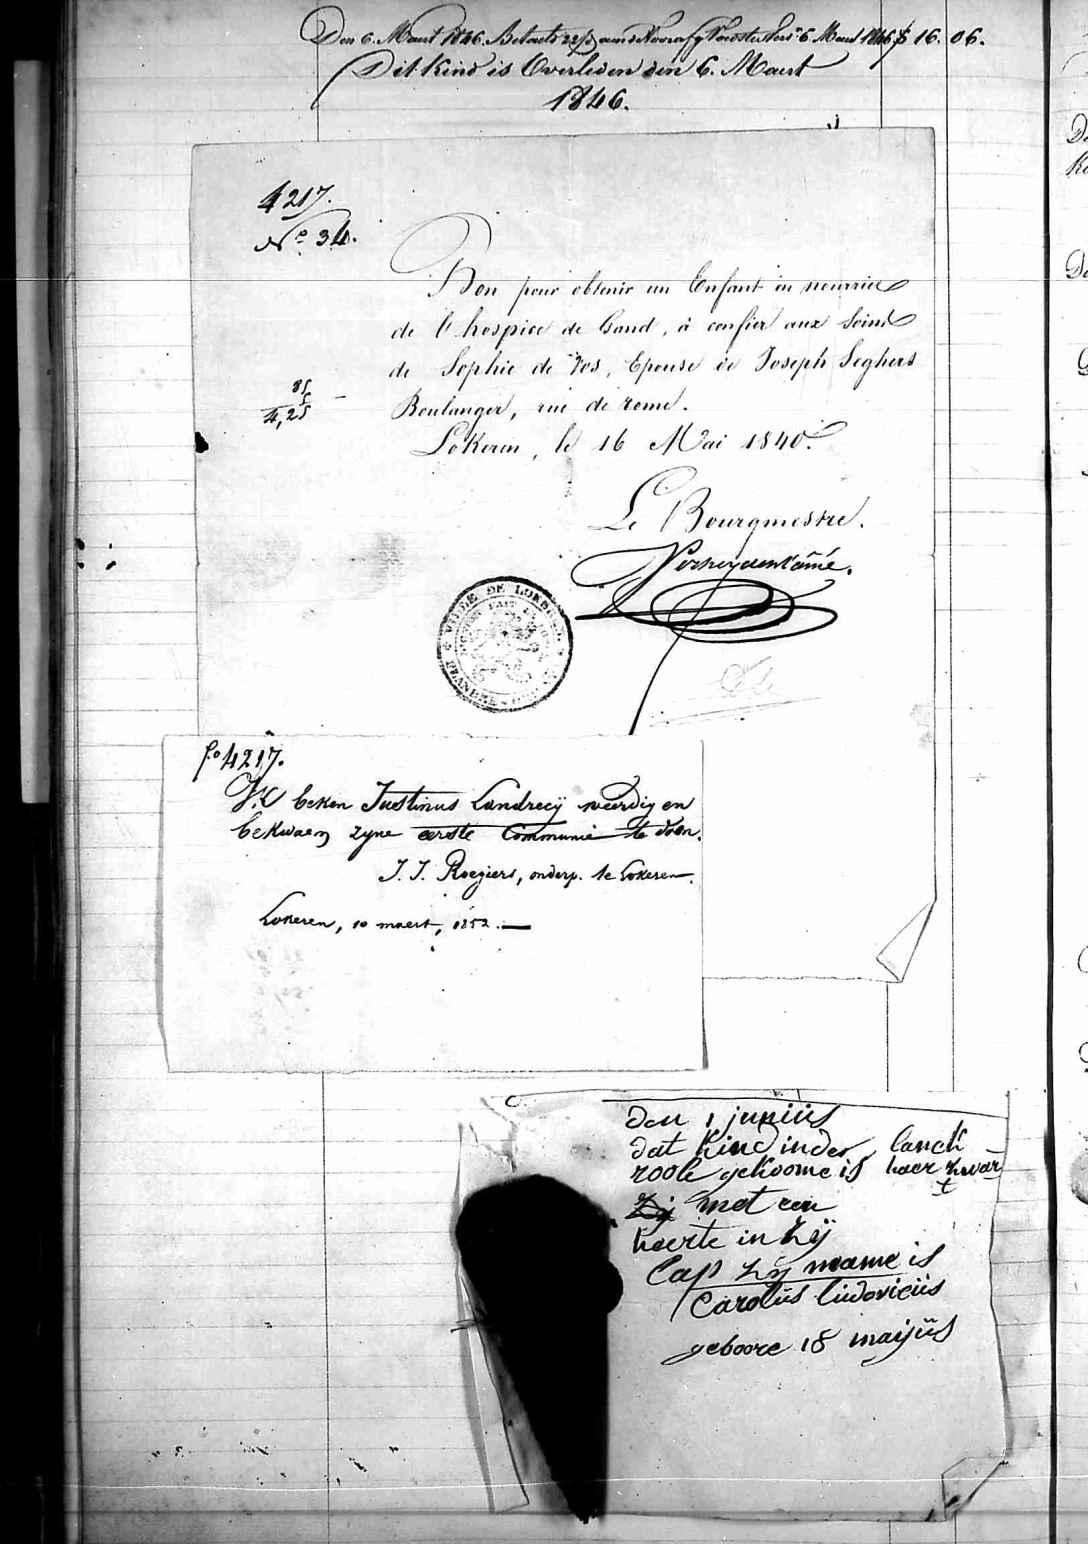 Den 6. Maert 1846. Betaelt aen 6 Maert 1846 16. 06.
Dit Kind is Overleden den 6. Maert
1846.
4217.
N° 34.
Bon pour obtenir un Enfant en nourrice
de l'hospice de Gand, à confier aux soins
de Sophie de Vos, Epouse de Joseph Seghers
Boulanger, rue de rome.
85
5
4,25
Lokeren, le 16 Mai 1840.
Le Bourgmestre.
VILLE DE LOKEREN
FLANDRE
fo 4217.
Ik beken Justinus Landrecij weerdig en
bekwaem zyne eerste Communie te doen.
J. J. Roegiers, onderp. te Lokeren.
Lokeren, 10 maert, 1852.
den 1 juniüs
dat kind inder lanck
roole gekoome is haer zwar
t
Zij met een
kaerte in zij
Cap zij name is
Carolüs lüdovicüs
geboore 18 maijüs